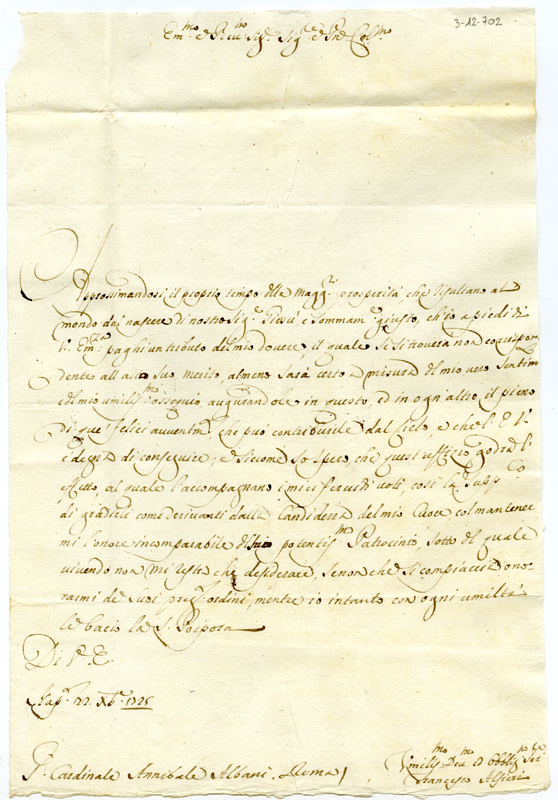 3-12-702
Em.mo e R.mo Sig.r Sig.e e Pne Col.mo
Approssimandosi il proprio tempo delle Magg.ri prosperità che risultano al
mondo dal nascere di nostro Sig.r Giesù è sommam.e giusto, ch'io a piedi di
V. Em.za paghi un tributo del mio dovere, il quale se si troverà non corrispon
dente all'alto suo merito, almeno sarà certo a misura del mio vero sentim
e del mio umiliss.mo ossequio augurandole in questo, ed in ogn'altro il pieno
di que' felici avventim che può contribuirle dal Cielo, e che l'E V.
è degna di conseguire; e siccome Io spero, che quest'uffizio godrà l'
effetto, al quale l'accompagnano i miei fervidi voti, così la supp.co
di gradirli come derivanti dalla Candidezza del mio Cuore col mantener
mi l'onore incomparabile del suo potentiss.mo Patrocinio, sotto del quale
vivendo non mi resta che desiderare, se non che si compiaccia ono-
rarmi de suoi preg.ti ordini, mentre io intanto con ogni umiltà
le bacio la S. Porpora
Di V. E.
Nap. 22. Xb.e 1725
S. Cardinale Annibale Albani. Roma
Umiliss.mo Dev.mo ed Obblig.mo Ser.
Francesco Alfieri